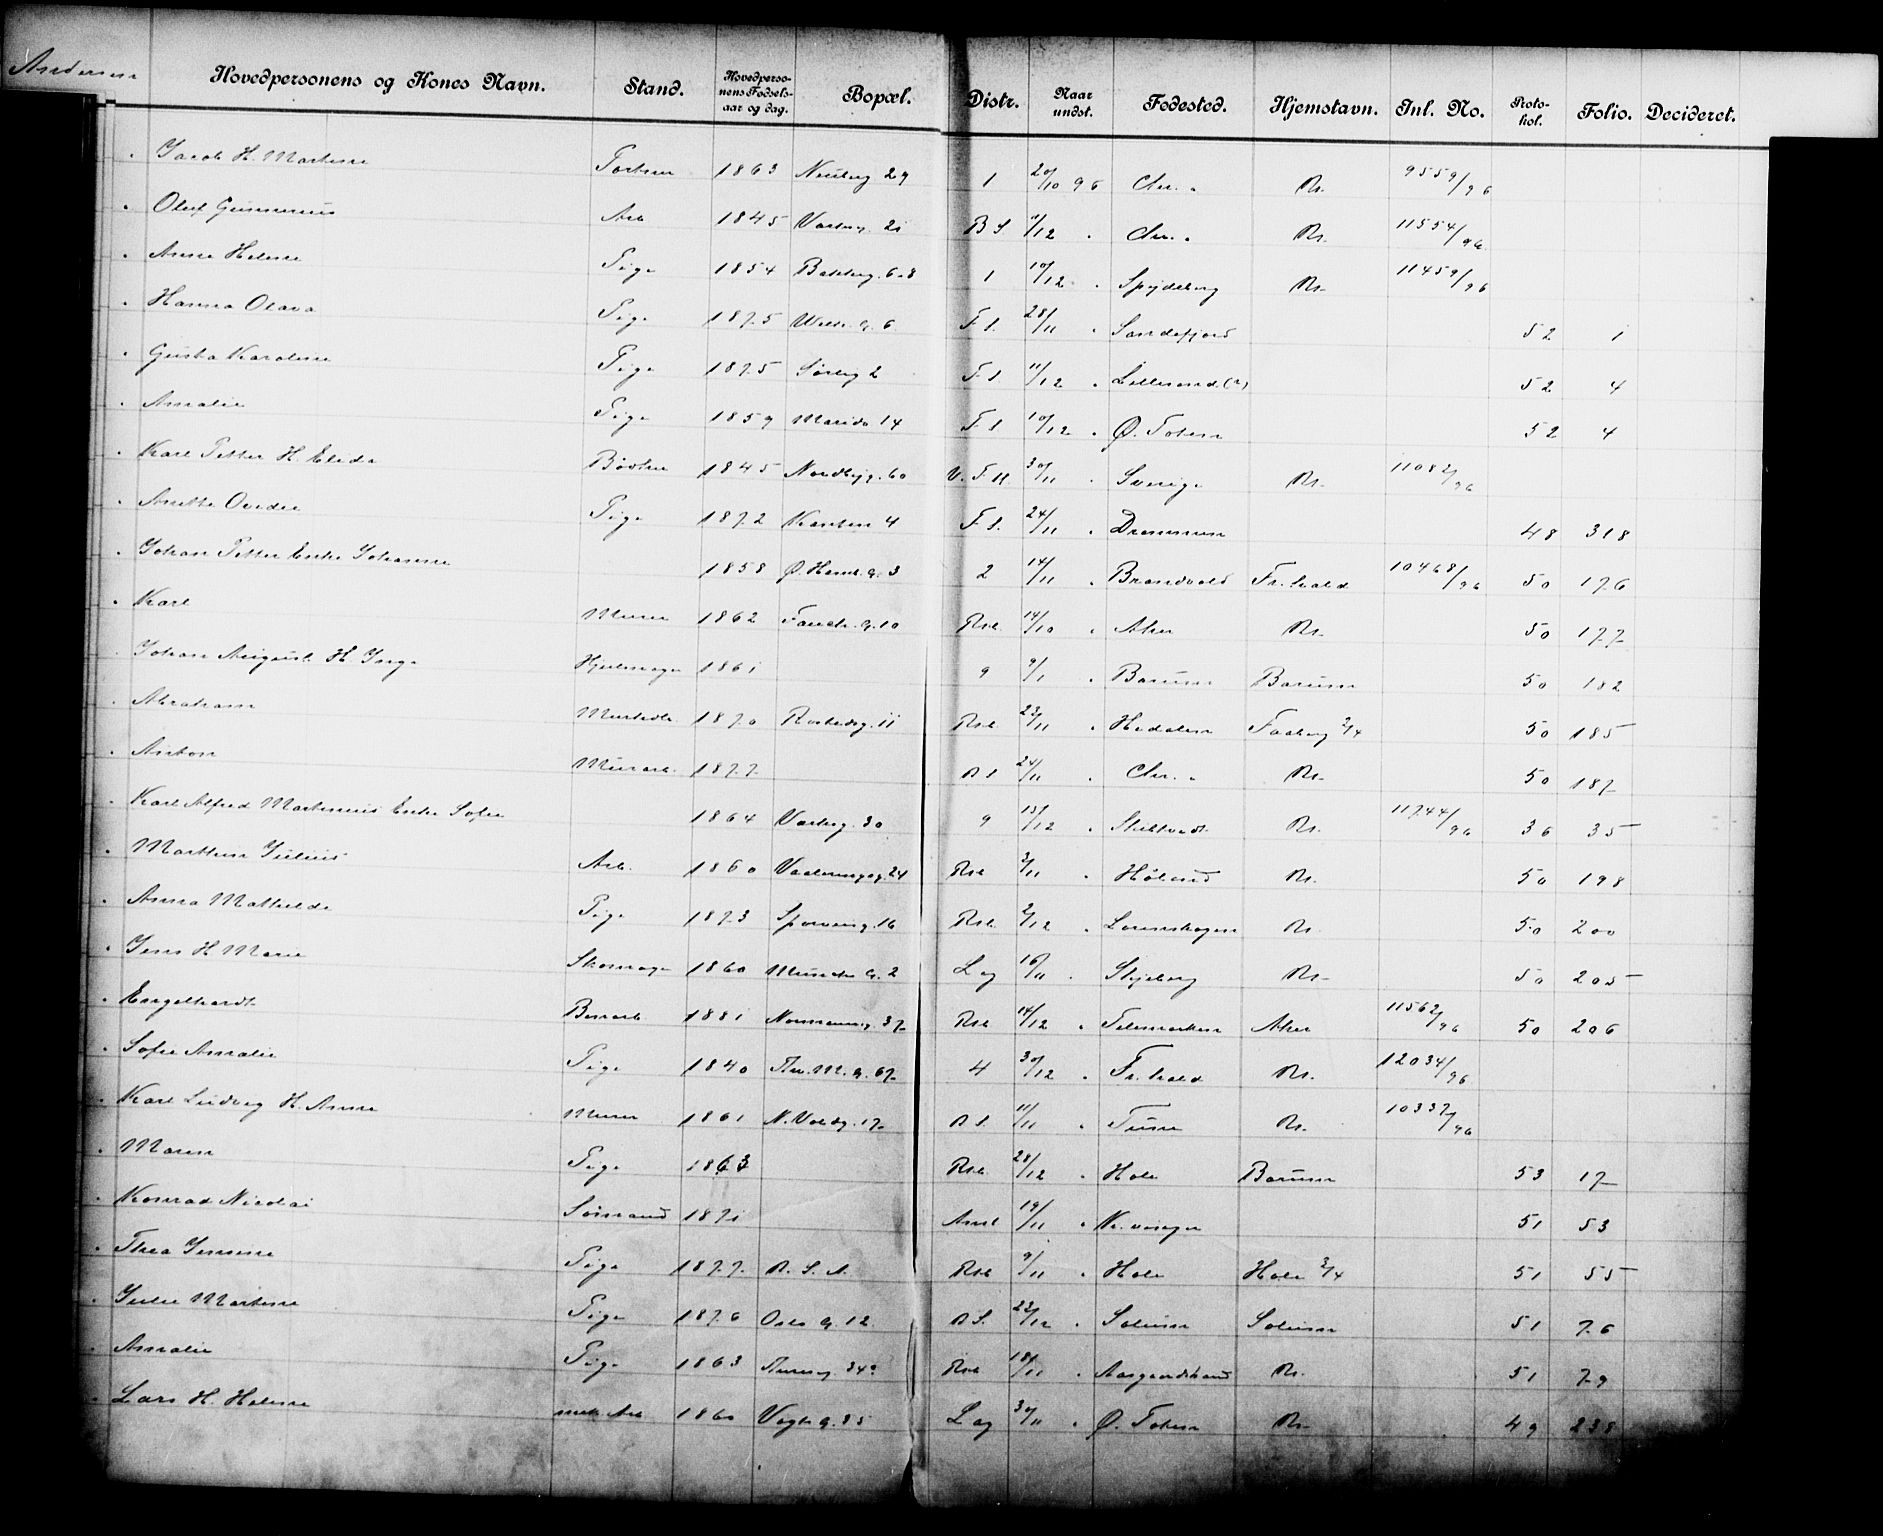 Andersen
Hovedpersonens og Kones Navn. Stand. Hovedpersonens Fødselsaar og dag. Bopæl. Distr. Naar undst. Fødested. Hjemstavn. Inl. No. Protokol. Folio. Decideret.
Jacob H. Martine 1863 29 1 20/10 96 Chr. Kr. 9559/96
Oluf Gunnerius Arb 1845 21 B S 11/12 Chr. Kr. 11554/96
Anne Helene Pige 1854 6-8 1 10/12 Spydeberg Kr. 11459/96
Hanna Olava Pige 1875 6 F S. 28/11 Sandefjord 52 1
Gusta Karoline Pige 1875 Sørbyg 2 F S. 11/12 Lillesand (?) 52 4
Amalie Pige 1859 Marido 14 F S 10/12 Ø. Toten 52 4
Karl Petter H. Elida Bødker 1845 Nordbyg. 60 V. F. H. 30/11 Sverige Kr. 11082/96
Anette Ovidie Pige 1872 Kanten 4 F S. 24/11 Drammen 48 318
Johan Petter Enke Johanne 1858 Ø. Haml. G. 3 2 14/11 Brandvold Fr.hald 10468/96 50 176
Karl Murer 1862 10 Rsl. 14/10 Aker Kr. 50 177
Johan August H. Inga Hjulmager 1861 9 9/1 Bærum Bærum 50 182
Abraham 1870 11 Rsl. 23/11 Hedalen Faaberg 2/4 50 185
Anton Murarb. 1877 B S 24/11 Chr. Kr. 50 187
Karl Alfred Martinius Enke Sofie 1864 30 9 15/12 Kr. 11744/96 36 35
Marthin Julius Arb. 1860 Vaaleringsg. 24 Rsl. 3/11 Høland Kr. 50 198
Anna Mathilde Pige 1873 Sporveisg. 16 Rsl. 2/12 Lørenskogen Kr. 50 200
Jens H. Marie Skomager 1860 Munch. G. 2 Lag 16/11 Skjeberg Kr. 50 205
Engelhardt 1881 Normannsg. 37 Rsl. 14/12 Telemarken Aker 11562/96 50 206
Sofie Amalie Pige 1840 67 4 30/12 Fr.hald Kr. 12034/96
Karl Ludvig H. Anna Murer 1861 N. Voldg. 17 B S. 11/11 Tune Kr. 10337/96
Maren Pige 1863 Rsl. 28/12 Hole Bærum 53 17
Konrad Nicolai Sømand 1871 19/11 Kr.vinger 51 53
Thea Jensine Pige 1877 Rsl. 9/11 Hole Hole 3/4 51 55
Julie Martine Pige 1876 Oslo G. 12 B S. 22/12 Solum Solum 51 76
Amalie Pige 1863 Rsl. 18/11 Aasgaardstrand Kr. 51 79
Lars H. Helene Arb 1860 Vogts G. 35 Lag 30/11 Ø. Toten Kr. 49 238